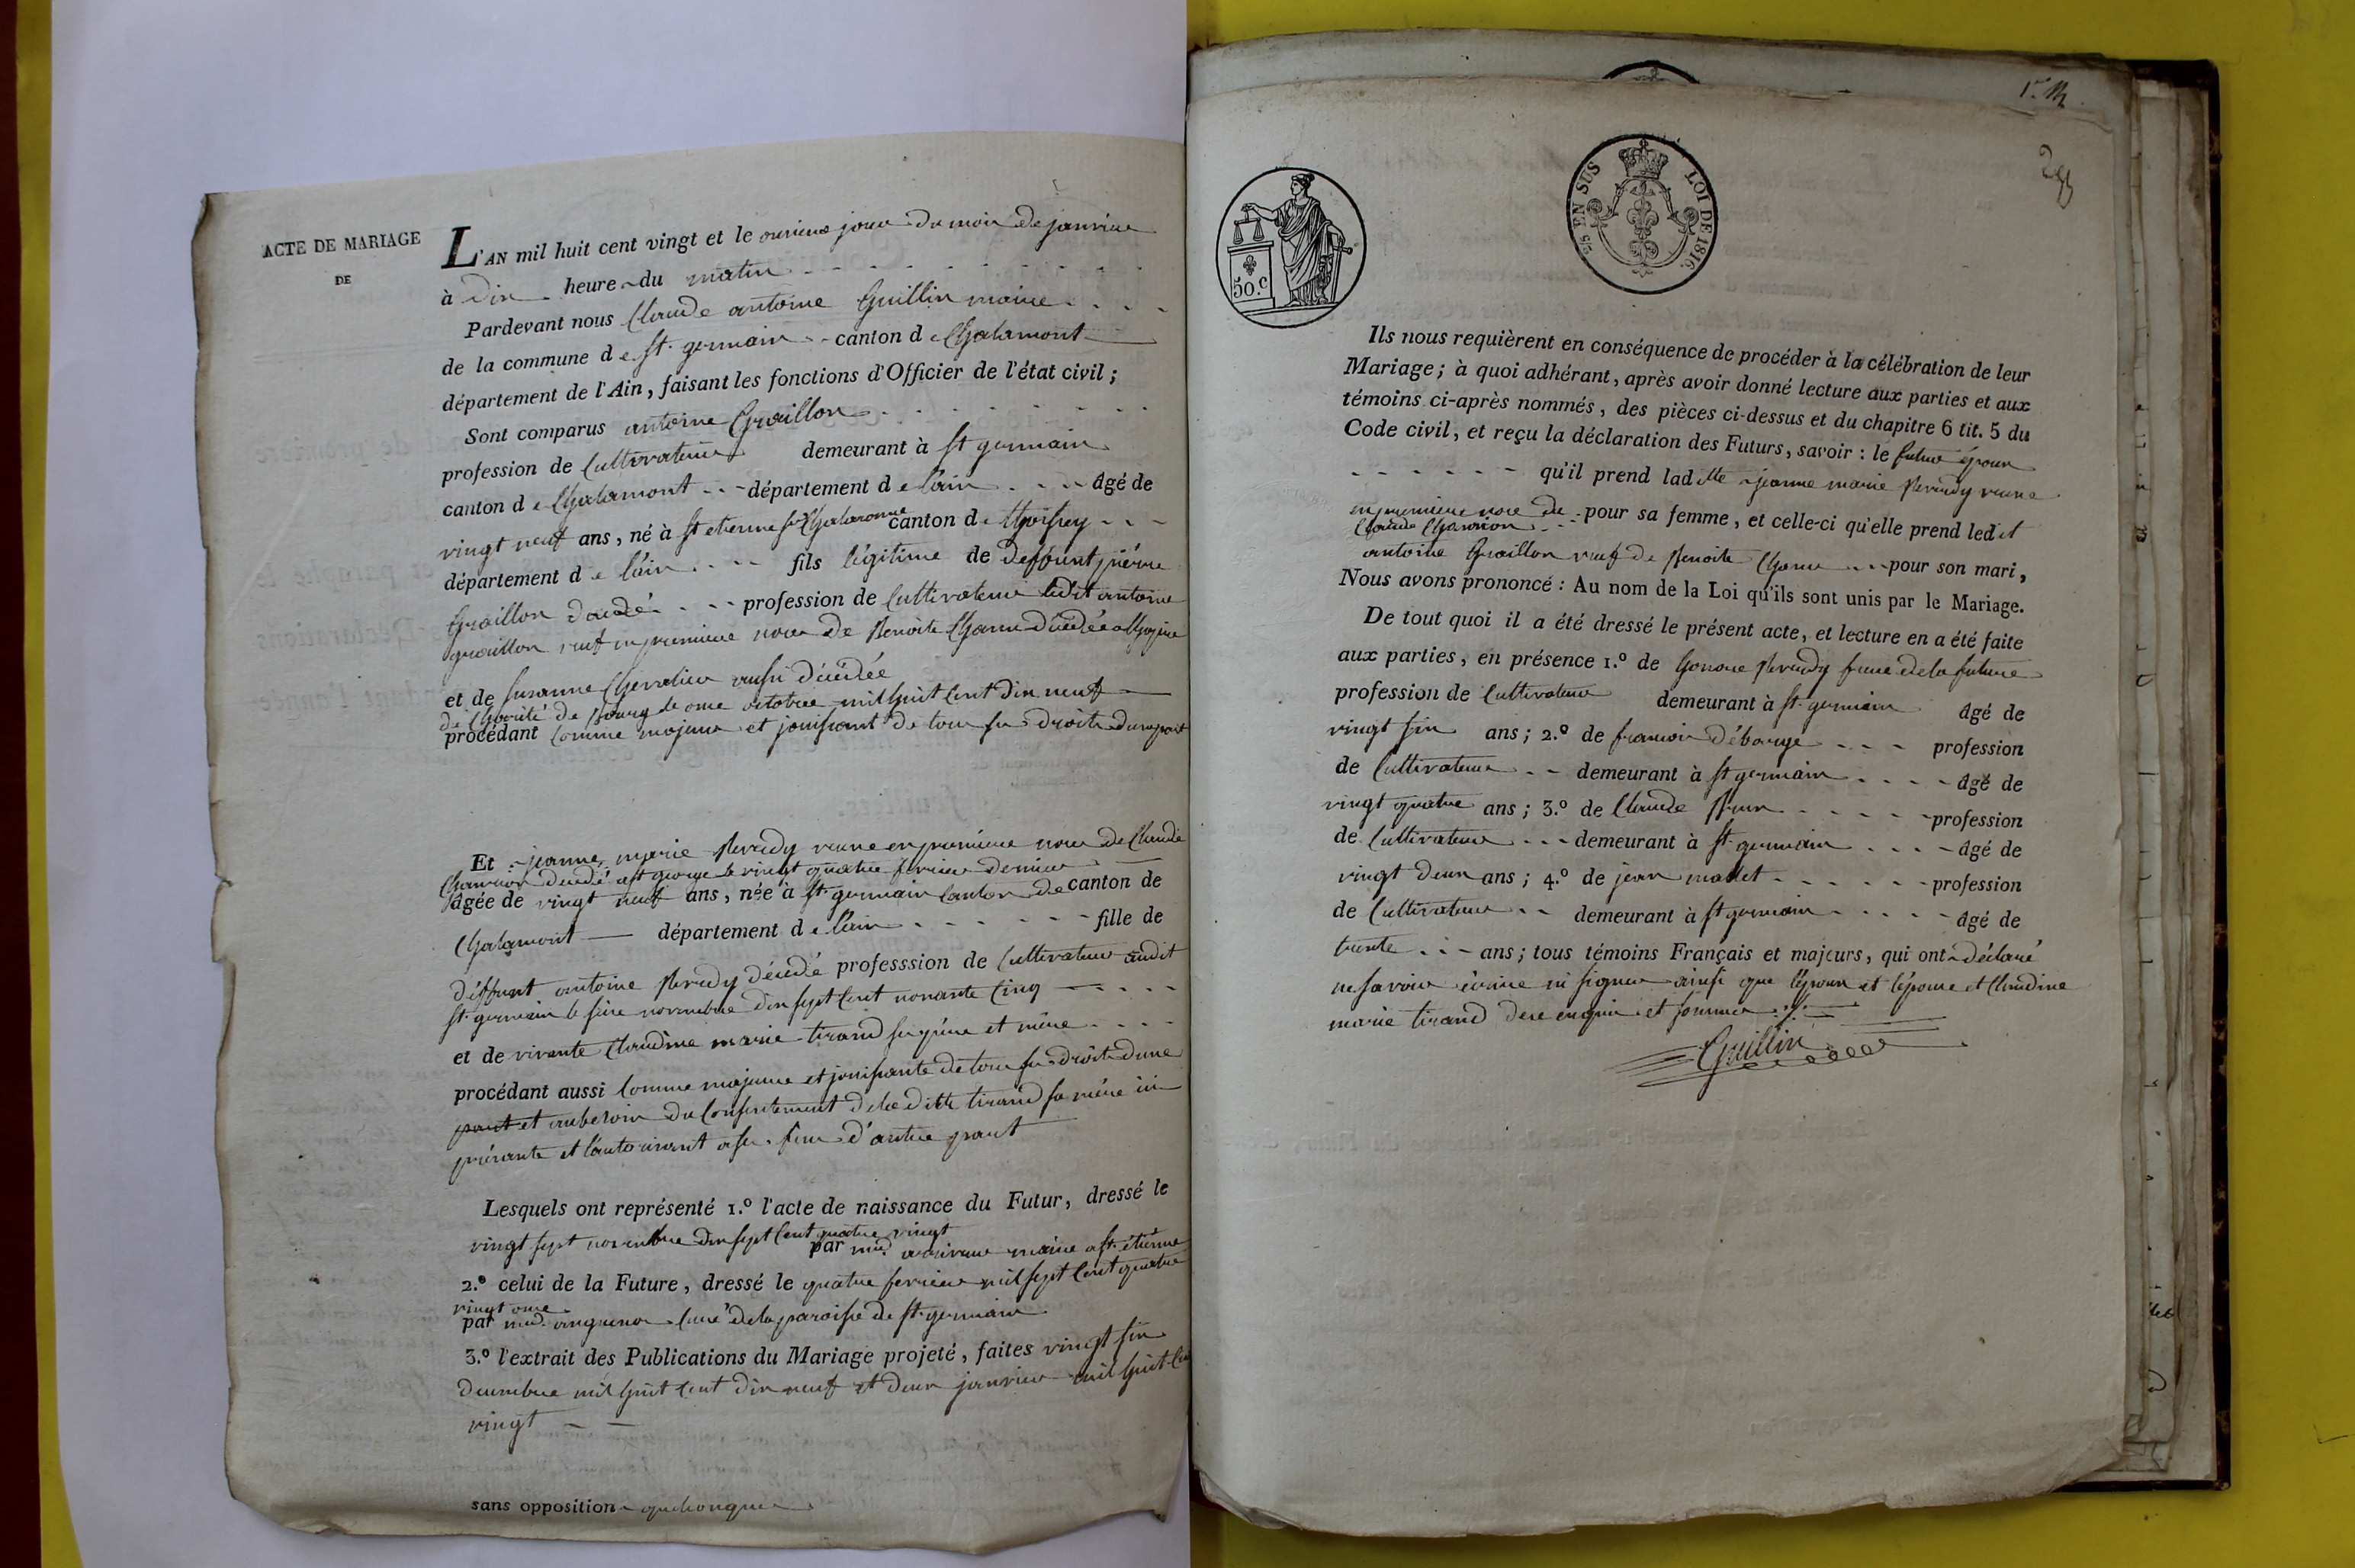 ACTE DE MARIAGE
DE
L'AN mil huit cent vingt et le onzieme jour du mois de janvier
à dix heure du matin
Pardevant nous Claude antoine Guillin maire
de la commune de St. germain canton de Chalamont
département de l'Ain, faisant les fonctions d'Officier de l'état civil;
Sont comparus antoine Groillon
profession de Cultivateur demeurant à St germain
canton de Chalamont département de l'ain âgé de
vingt neuf ans, né à St etienne sr Chalaronne canton de thoissey
département de l'ain fils légitime de deffunt pierre
Groillon décédé profession de Cultivateur ledit antoine
groillon veuf en premiere noce de Benoite décédée a
et de Susanne Chevalier aussi décédée
de Charité de Bourg le onze octobre mil huit cent dix neuf
procédant comme majeur et jouissant de tous ses droits d'une part
Et jeanne marie veuve en première noce de Claude
décédé a St george le vingt quatre fevrier dernier
âgée de vingt neuf ans, née à St. germain canton de canton de
Chalamont département de l'ain fille de
déffunt antoine décédé professsion de Cultivateur audit
St. germain le seize novembre dix sept cent nonante cinq
et de vivante Claudine marie tirand ses père et mère
procédant aussi comme majeure et jouissante de tous ses droits d'une
part et au besoin du consentement de la ditte tirand sa mère ici
présente et l'autorisant a ses fins d'autre part
Lesquels ont représenté 1.º l'acte de naissance du Futur, dressé le
vingt sept novembre dix sept cent quatre vingt
par maire a St. étienne
2.º celui de la Future, dressé le quatre fevrier mil sept cent quatre
vingt onze
par curé de la paroisse de St. germain
3.º l'extrait des Publications du Mariage projeté, faites vingt six
decembre mil huit cent dix neuf et deux janvier mil huit cent
vingt
sans opposition quelconque
25 EN SUS LOI DE 1816.
50.c
Ils nous requièrent en conséquence de procéder à la célébration de leur
Mariage; à quoi adhérant, après avoir donné lecture aux parties et aux
témoins ci-après nommés, des pièces ci-dessus et du chapitre 6 tit. 5 du
Code civil, et reçu la déclaration des Futurs, savoir: le futur époux
qu'il prend laditte jeanne marie veuve
en première noce de pour sa femme, et celle-ci qu'elle prend ledit
Claude
antoine Groillon veuf de Benoite pour son mari,
Nous avons prononcé: Au nom de la Loi qu'ils sont unis par le Mariage.
De tout quoi il a été dressé le présent acte, et lecture en a été faite
aux parties, en présence 1.º de frere de la future
profession de Cultivateur demeurant à St. germain âgé de
vingt six ans; 2.º de francois Débarge profession
de Cultivateur demeurant à St germain âgé de
vingt quatre ans; 3.º de Claude profession
de Cultivateur demeurant à St. germain âgé de
vingt deux ans; 4.º de jean profession
de Cultivateur demeurant à St germain âgé de
trente ans; tous témoins Français et majeurs, qui ont déclaré
ne savoir écrire ni signer ainsi que l'époux et l'épouse et Claudine
marie tirand de ce enquis et sommés
Guillin